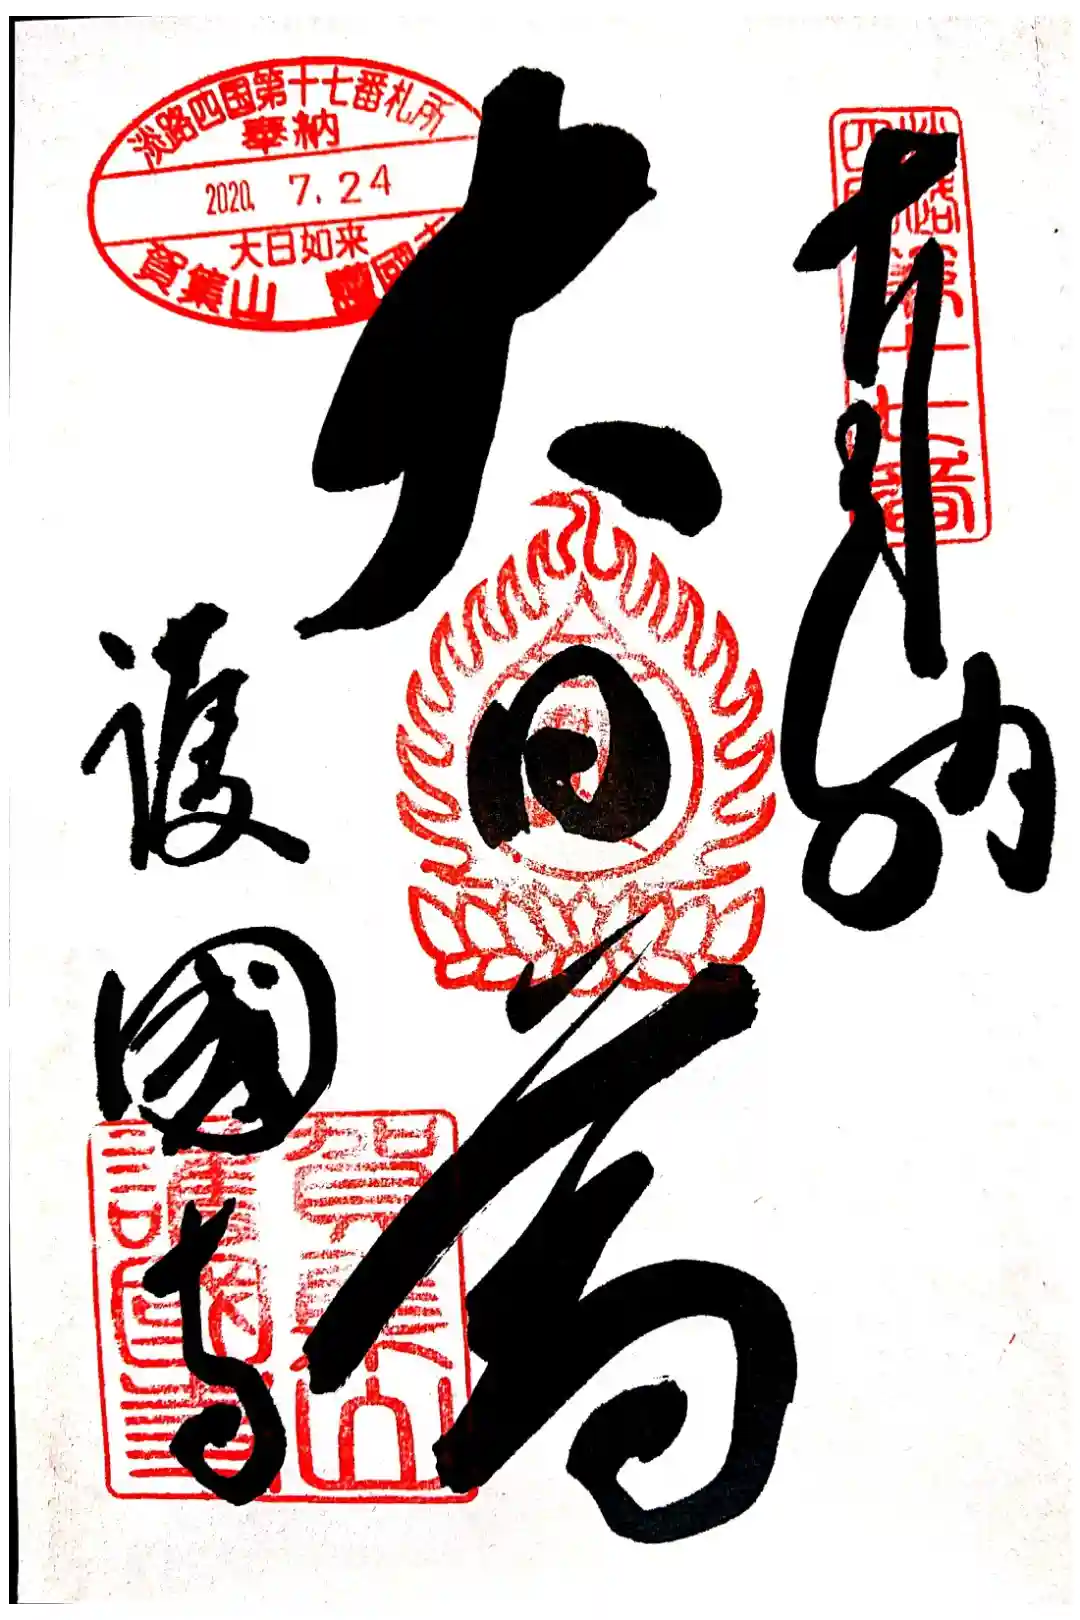 淡路四国第十七番
奉納
大日尊
護國寺
淡路四国第十七番札所
奉納
2020. 7.24
大日如来
賀集山 護國寺
賀集山